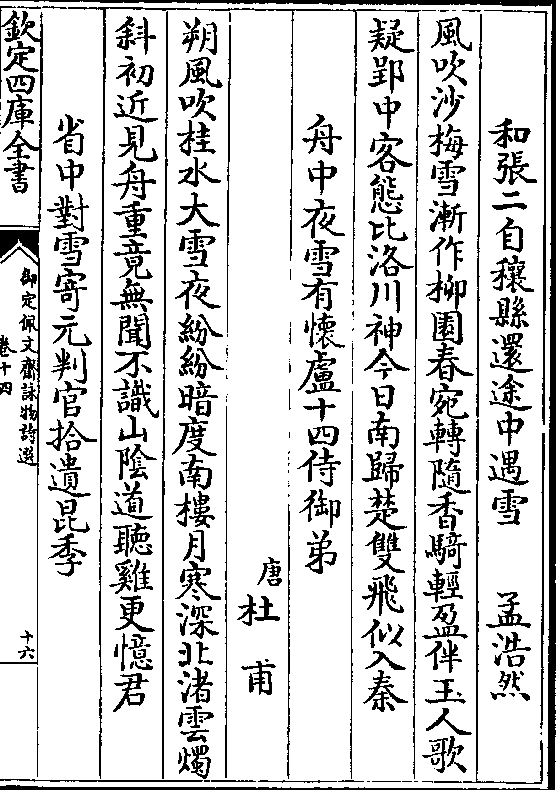 和張二自穰縣還途中遇雪　孟浩然
風吹沙梅雪漸作柳園春宛轉隨香騎輕盈伴玉人歌
疑郢中客態比洛川神今日南歸楚雙飛似入秦
舟中夜雪有懷盧十四侍御弟
唐杜甫
朔風吹桂水大雪夜紛紛暗度南樓月寒深北渚雲燭
斜初近見舟重竟無聞不識山陰道聽雞更憶君
省中對雪寄元判官拾遺昆季
欽定四庫全書
御定佩文齋詠物詩選
卷十四
十六